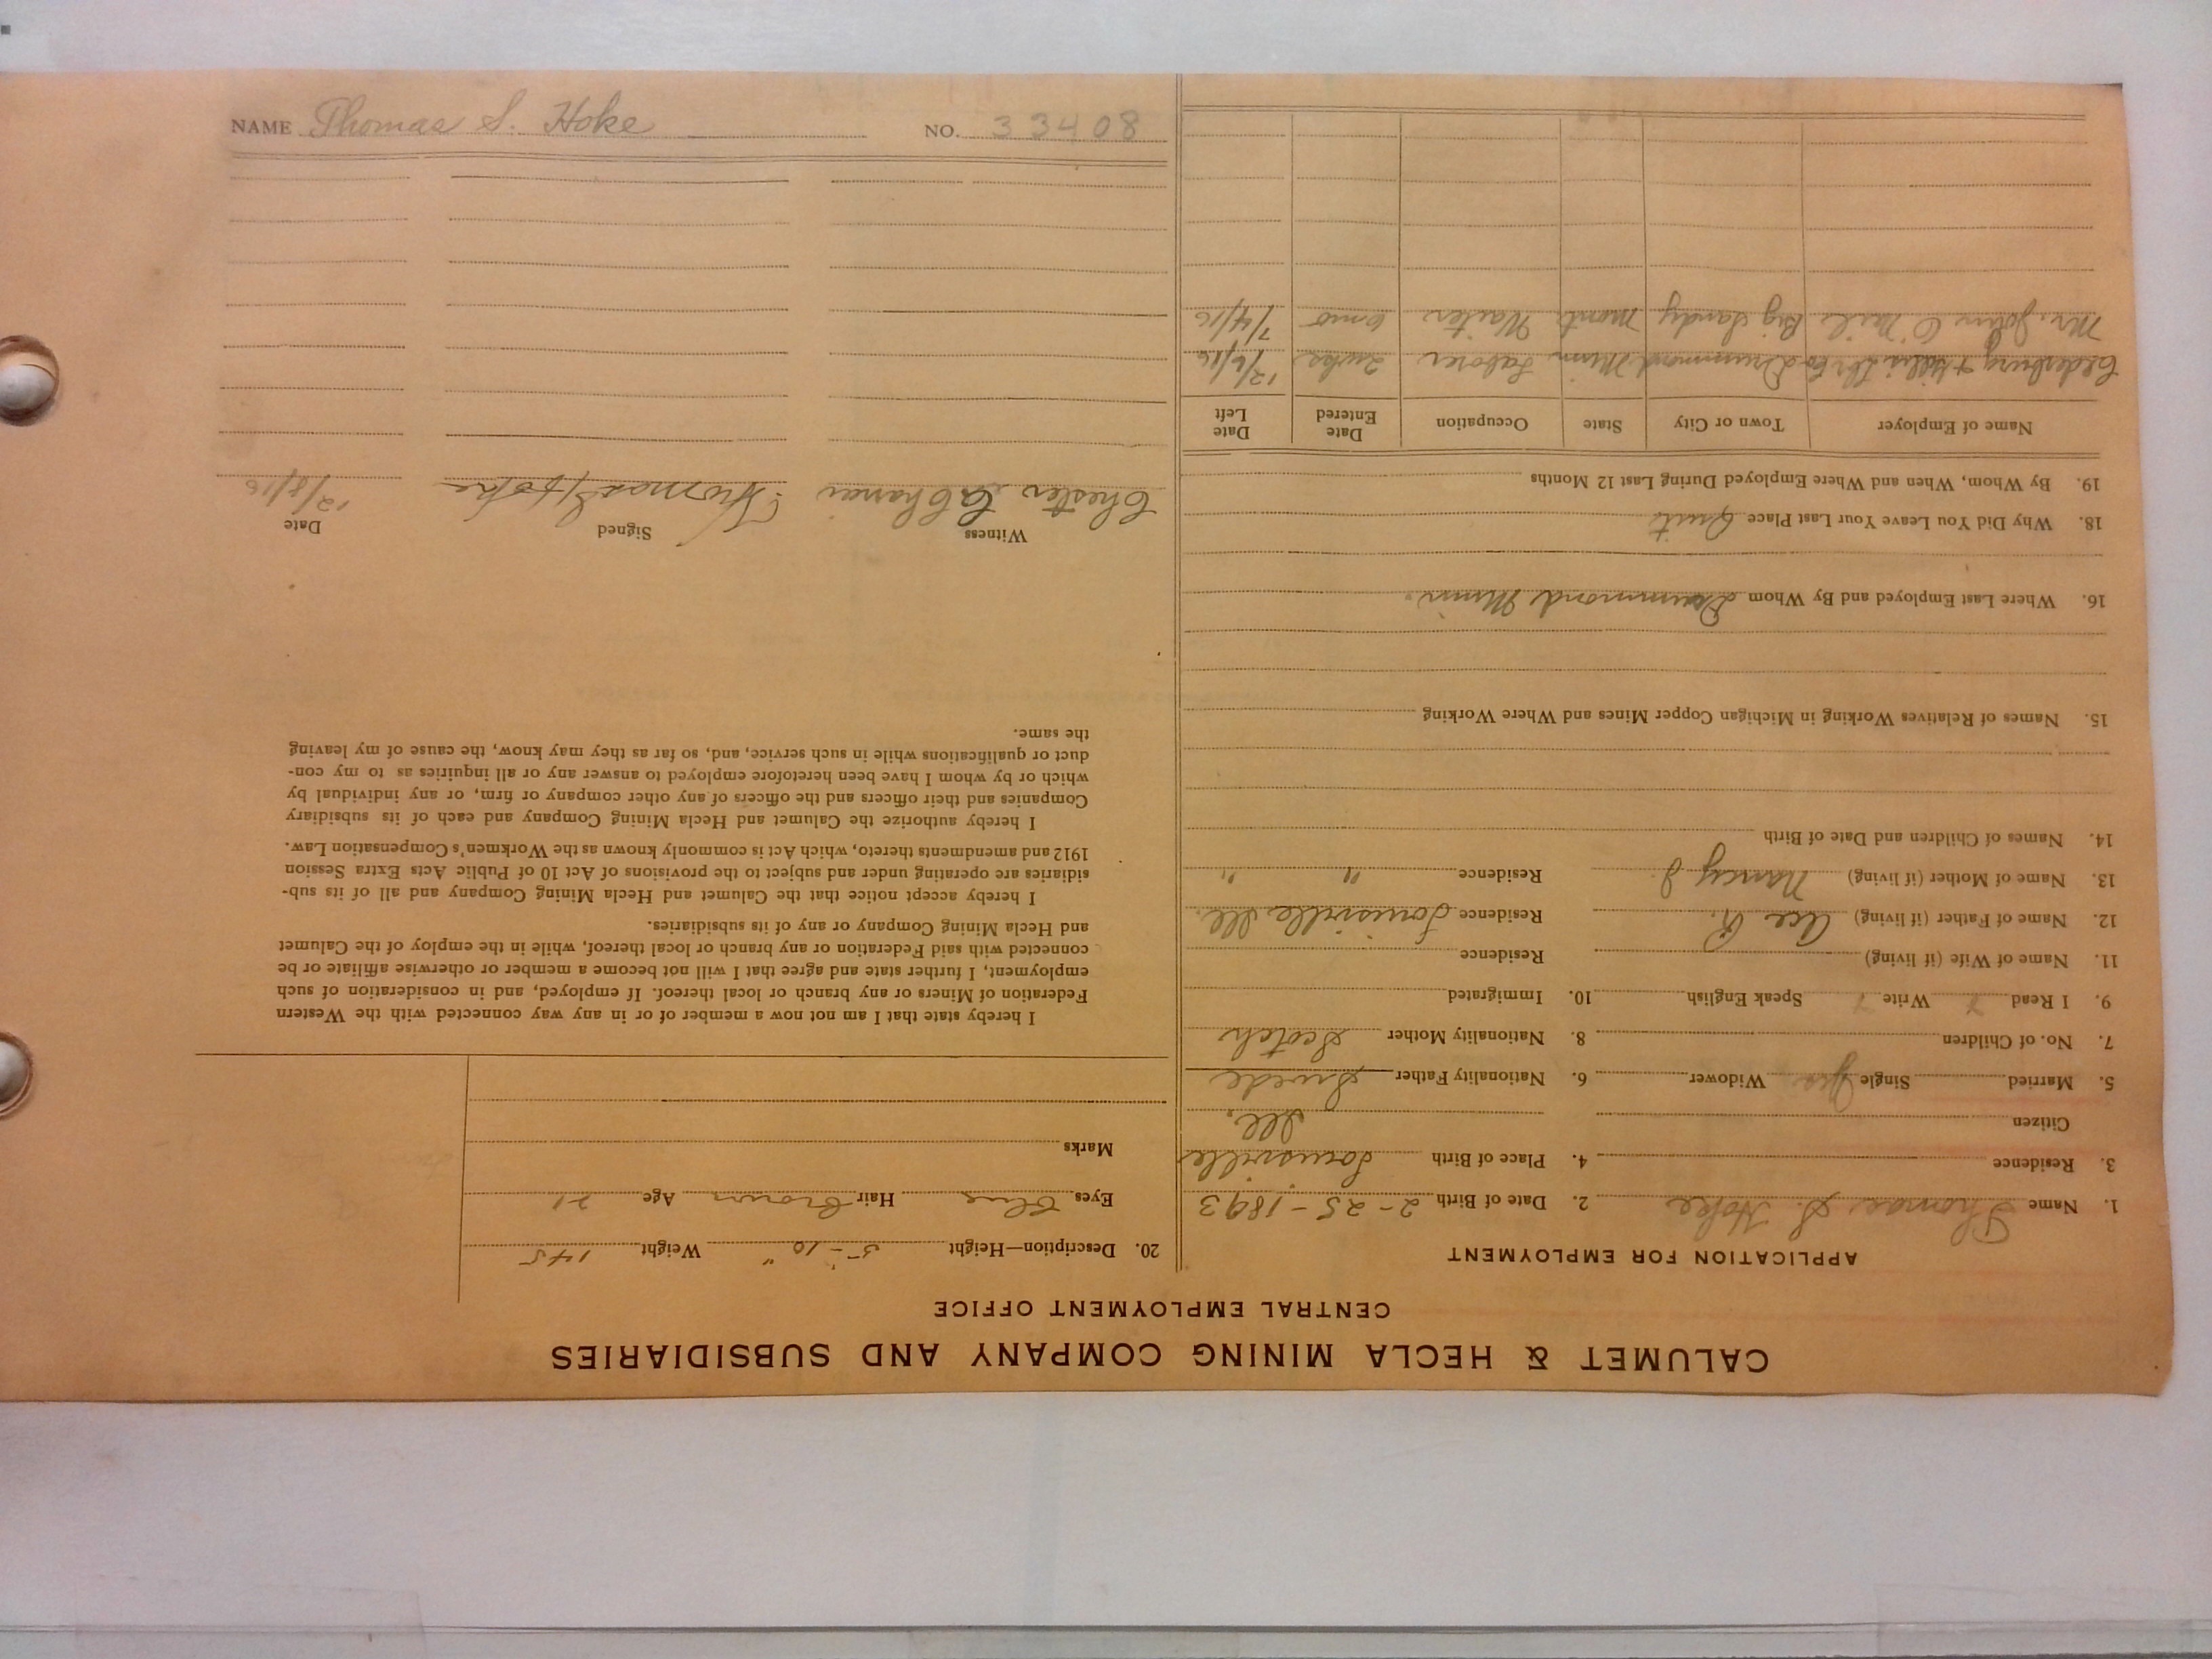 NAME Thomas S. Hoke NO. 33408
CALUMET & HECLA MINING COMPANY AND SUBSIDIARIES
CENTRAL EMPLOYMENT OFFICE
APPLICATION FOR EMPLOYMENT
1. Name Thomas S. Hoke 2. Date of Birth 2-25-1893
3. Residence 4. Place of Birth Louisville
Citizen Ill.
5. Married Single Yes Widower 6. Nationality Father Swede
7. No. of Children 8. Nationality Mother Scotch
9. I Read Write Speak English 10. Immigrated
11. Name of Wife (if living) Residence
12. Name of Father (if living) Ace R. Residence Louisville Ill.
13. Name of Mother (if living) Nancy J Residence " "
14. Names of Children and Date of Birth
15. Names of Relatives Working in Michigan Copper Mines and Where Working
16. Where Last Employed and By Whom Drummond Minn.
18. Why Did You Leave Your Last Place Quit
19. By Whom, When and Where Employed During Last 12 Months
Name of Employer Town or City State Occupation Date Entered Date Left
Drummond Minn Laborer 2wks 12/6/16
Mr. John O'Neil Big Sandy Mont Waiter 6 mo 7/4/16
20. Description—Height 5'-10" Weight 145
Eyes Blue Hair Brown Age 21
Marks
I hereby state that I am not now a member of or in any way connected with the Western
Federation of Miners or any branch or local thereof. If employed, and in consideration of such
employment, I further state and agree that I will not become a member or otherwise affiliate or be
connected with said Federation or any branch or local thereof, while in the employ of the Calumet
and Hecla Mining Company or any of its subsidiaries.
I hereby accept notice that the Calumet and Hecla Mining Company and all of its sub-
sidiaries are operating under and subject to the provisions of Act 10 of Public Acts Extra Session
1912 and amendments thereto, which Act is commonly known as the Workmen's Compensation Law.
I hereby authorize the Calumet and Hecla Mining Company and each of its subsidiary
Companies and their officers and the officers of any other company or firm, or any individual by
which or by whom I have been heretofore employed to answer any or all inquiries as to my con-
duct or qualifications while in such service, and, so far as they may know, the cause of my leaving
the same.
Witness Signed Date
Chester Thomas S Hoke 12/8/16